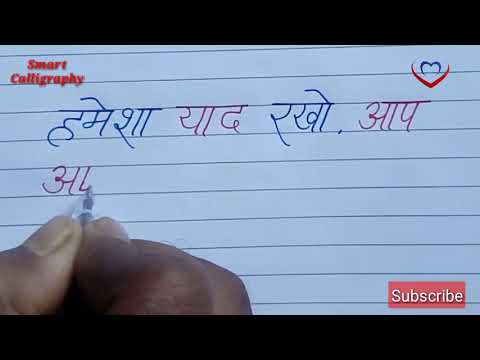 Smart
Calligraphy
हमेशा याद रखो. आप
Subscribe